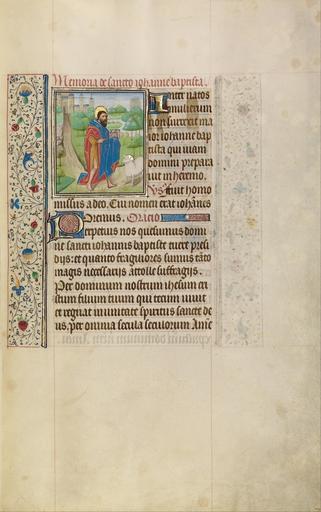 Memoria de sancto iohanne baptista.
Inter natos
mulierum
non surrexit ma
ior iohanne bap
tista qui viam
domini prepara
uit in heremo.
Vs fuit homo
missus a deo. Cui nomen erat iohānes
Oremus. Oratio
Perpetuis nos quesumus domi
ne sancti iohannis baptiste tuere presi
dijs: et quanto fragiliores sumus tāto
magis necessarijs attolle suffragijs.
Per dominum nostrum ihesum cri
stum filium tuum qui tecum viuit
et regnat in vnitate spiritus sancti de
us, per omnia secula seculorum Amē